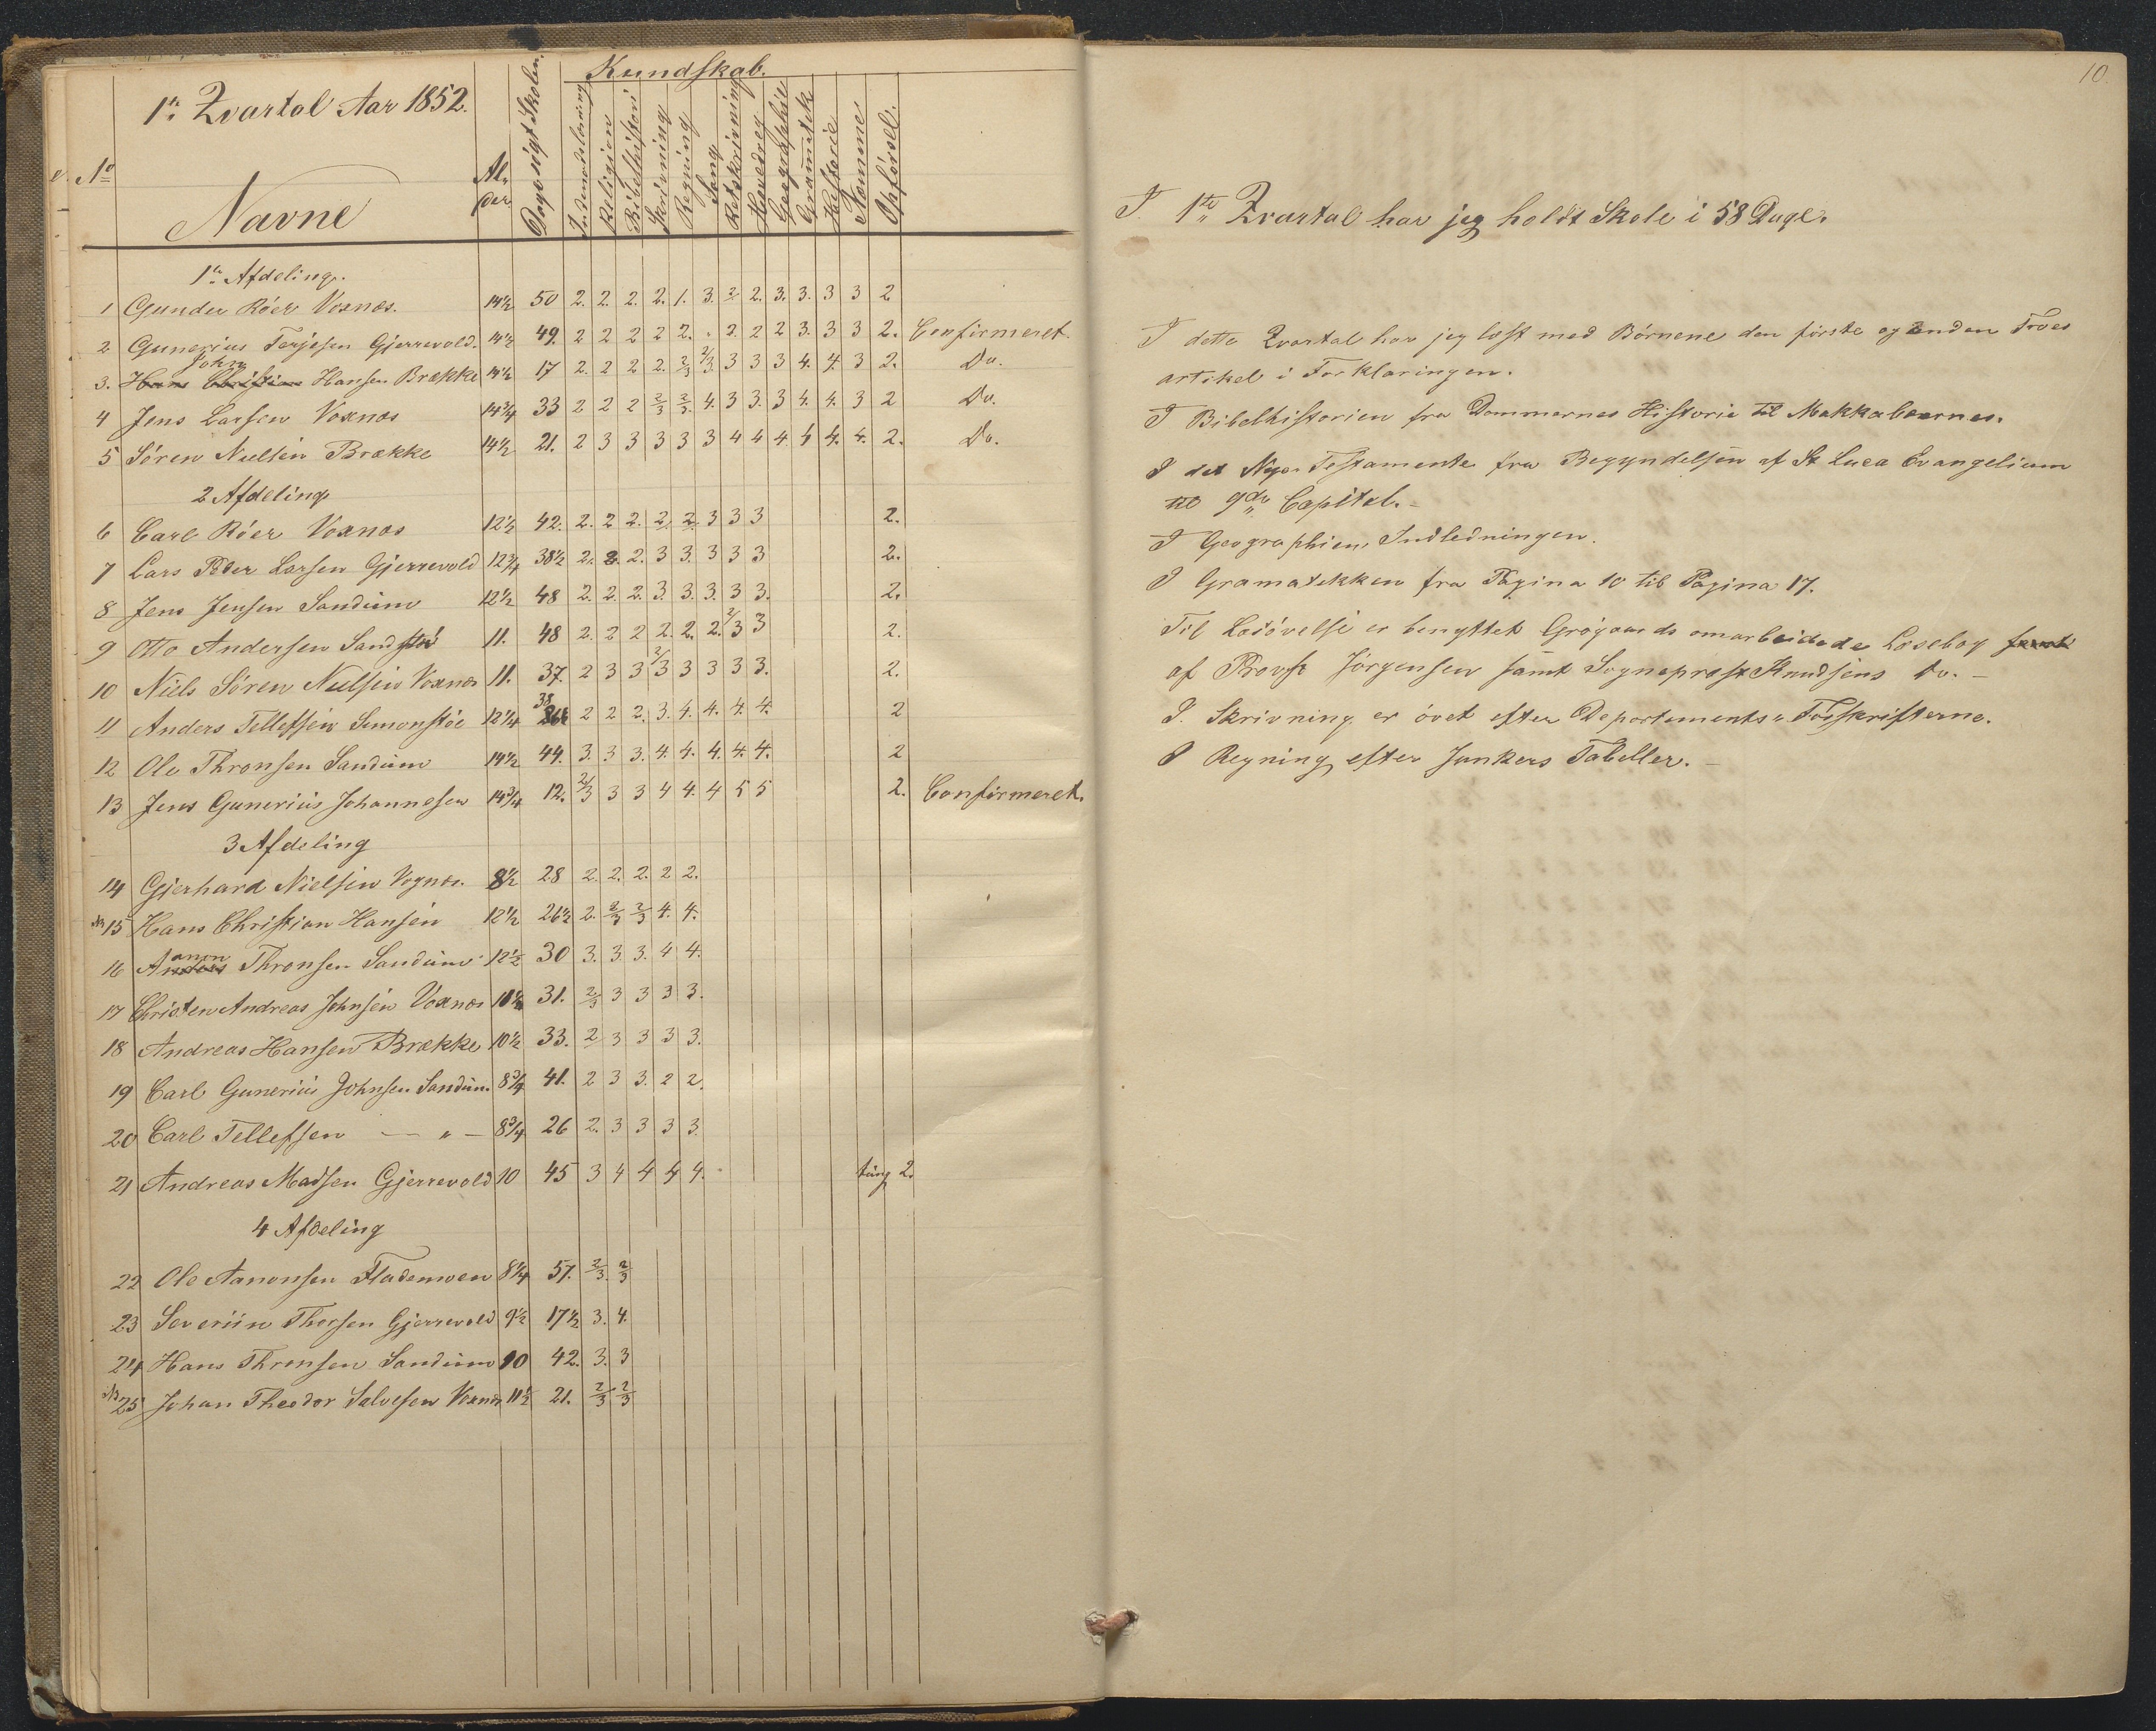 1te Qvartal Aar 1852.
No
Navne
Alder
Dage søgt Skolen
Kundskab.
Indenadslæsning
Religion
Bibelhistori
Skrivning
Regning
Sang
Retskrivning
Hovedreg
Geographie
Gramatik
Historie
Opførsel.
1te Afdeling.
1 Gunder Röer Voxnæs. 14½ 50 2. 2. 2. 2. 1. 3. 2 2. 3. 3. 3 3 2
2 Gunerius Terjesen Gjerrevold. 14½ 49. 2 2 2 2 2. . 2. 2 2 3. 3 3 2. Confirmeret.
John
3. Hans Christian Hansen Brække 14½ 17 2. 2 2 2. 2/3 2/3 3 3 3 4. 4. 3 2. Do.
4 Jens Larsen Voxnæs 14¾ 33 2 2 2 2/3 2/3. 4. 3 3. 3 4. 4. 3 2 Do.
5 Sören Nielsen Brække 14½ 21. 2 3 3 3 3 3 4 4 4 4 4. 4. 2. Do.
2 Afdeling
6 Carl Röer Voxnæs 12½ 42. 2. 2 2. 2. 2. 3 3 3 2.
7 Lars Peder Larsen Gjerrevold 12¾ 38½ 2. 2. 2. 3 3. 3 3 3 2.
8 Jens Jensen Sandum 12½ 48 2. 2. 2. 3. 3. 3. 3 3. 2.
9 Otto Andersen Sandstö 11. 48 2. 2 2 2. 2. 2. 2/3 3 2.
10 Niels Sören Nielsen Voxnæs 11. 37. 2 3 3 2/3 3 3 3 3. 2.
11 Anders Tellefsen Simonstöe 12¼ 38 2 2 2. 3. 4. 4. 4. 4. 2
12 Ole Thronsen Sandum 14½ 44. 3. 3 3. 4. 4. 4. 4. 4. 2
13 Jens Gunerius Johannesen 14¾ 12. 2/3 3 3 4 4. 4 5 5 2. Confirmeret.
3 Afdeling
14 Gjerhard Nielsen Vognæs. 8½ 28 2. 2. 2. 2 2.
N 15 Hans Christian Hansen 12½ 26½ 2. 2/3 2/3 4. 4.
anon
16 Anders Thronsen Sandum 12½ 30 3. 3. 3. 4 4.
17 Christen Andreas Johnsen Voxnæs 10½ 31. 2/3 3 3 3 3.
18 Andreas Hansen Brække 10½ 33. 2 3 3 3 3.
19 Carl Gunerius Johnsen Sandum 8¾ 41. 2 3 3. 2 2.
20 Carl Tellefsen — " — 8¾ 26 2. 3 3 3 3.
21 Andreas Madsen Gjerrevold 10 45 3 4 4 4 4. tung 2.
4 Afdeling
22 Ole Aanonsen Fladenoen 8¼ 57. 2/3. 2/3
23 Severiin Thorsen Gjerrevold 9½ 17½ 3. 4.
24 Hans Thronsen Sandum 10 42. 3. 3
N 25 Johan Theodor Salvesen Voxnæs 11½ 21. 2/3 2/3
10.
I 1te Qvartal har jeg holdt Skole i 58 Dage.
I dette Qvartal har jeg læst med Börnene den förste og anden Troes
artikel i Forklaringen.
I Bibelhistorien fra Dommernes Historie til Makkabæernes.
I det Nye Testamente fra Begyndelsen af St Luca Evangelium
til 9de Capitel. -
I Geographien, Indledningen.
I Gramatikken fra Pagina 10 til Pagina 17.
Til Læsövelse er benyttet Grögaards omarbeidede Læsebog samt
af Provst Jörgensen samt Sognepræst Knudsens Do. -
I. Skrivning er övet efter Departements Forskrifterne.
I Regning efter Junkers Tabeller. -